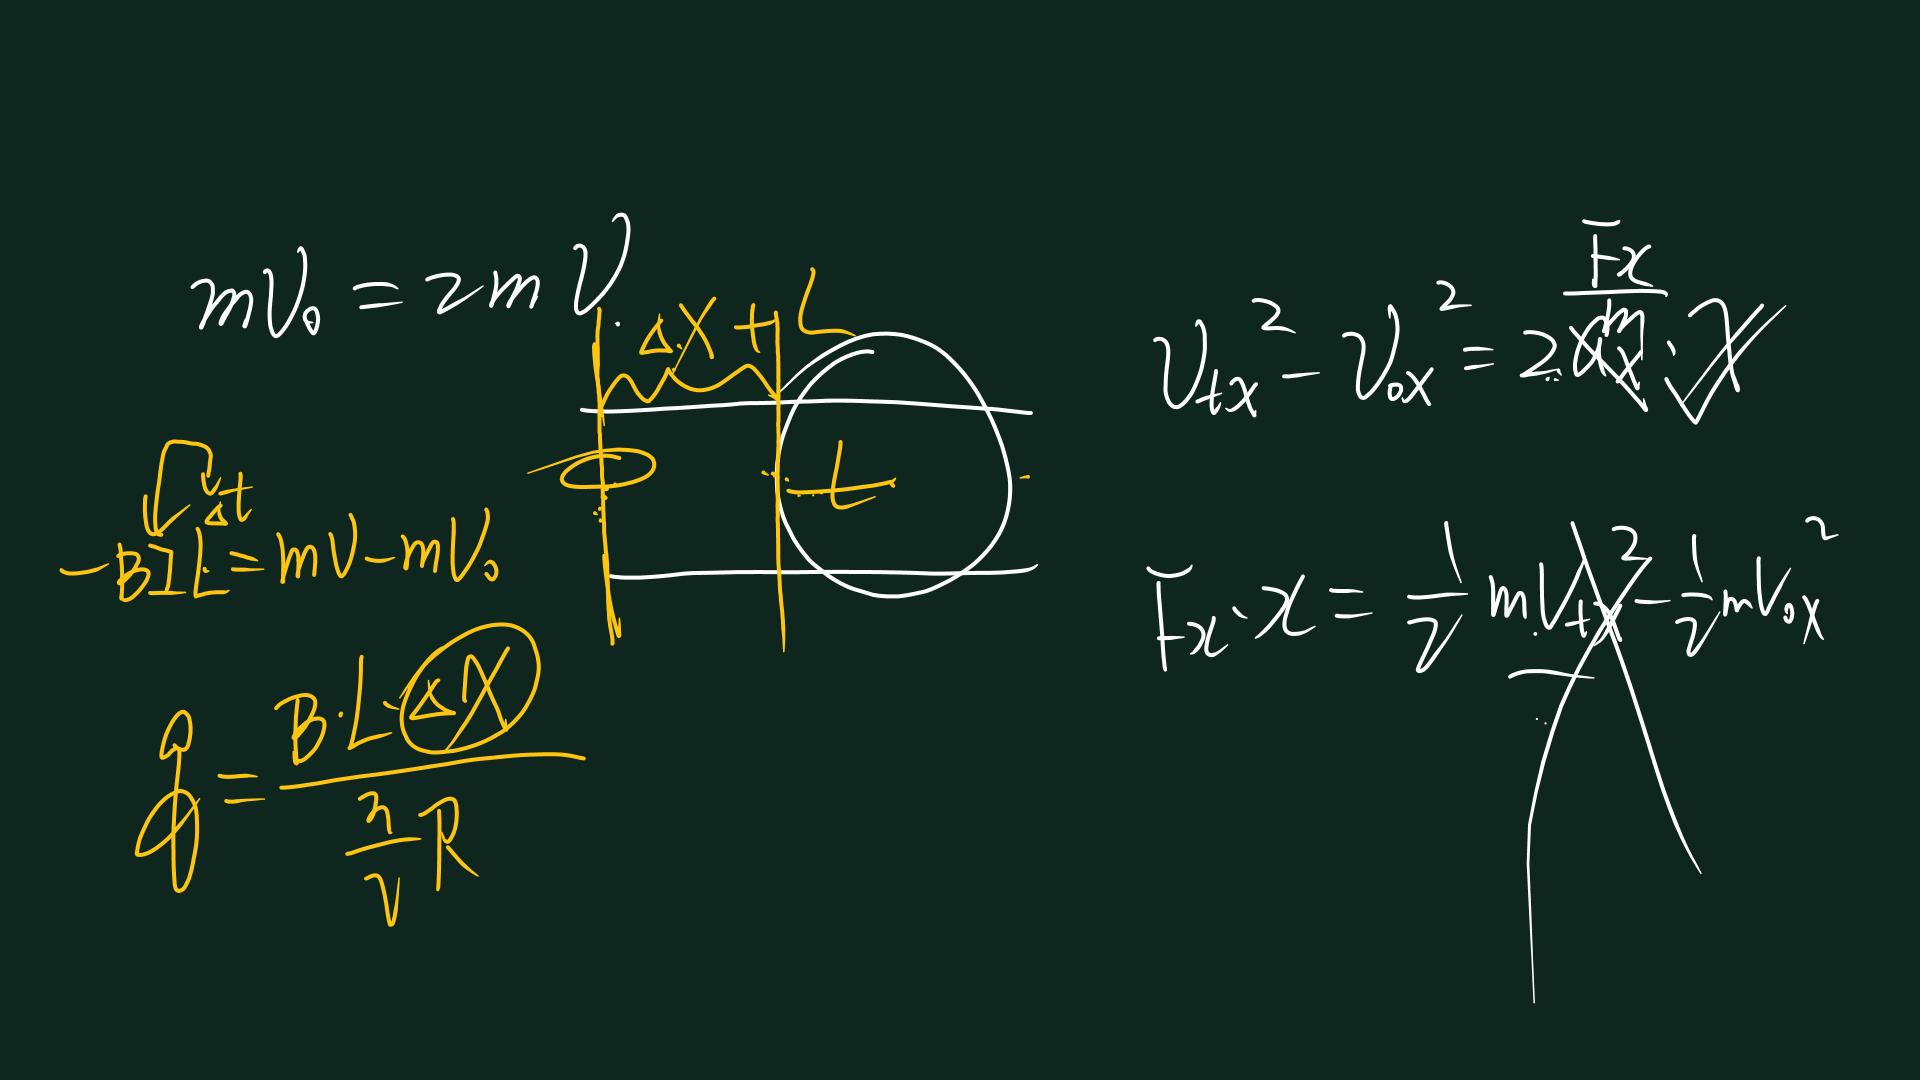 mV₀ = 2mV
ΔX + L
L
-BIL Δt = mV - mV₀
q = B·L·ΔX / (3/2 R)
V_tx² - V_0x² = 2 F_x/m · X
F_x · x = 1/2 mV_tx² - 1/2 mV_0x²